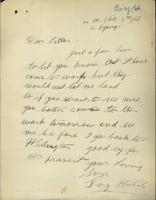 Dear Father
just a few lines
to let you know that I have
come to wharf but they
would not let me land
so if you want to see me
you better come to the
wart tomorrow and see
me be fore I go back to
Wellington good by for
the present your loving
son